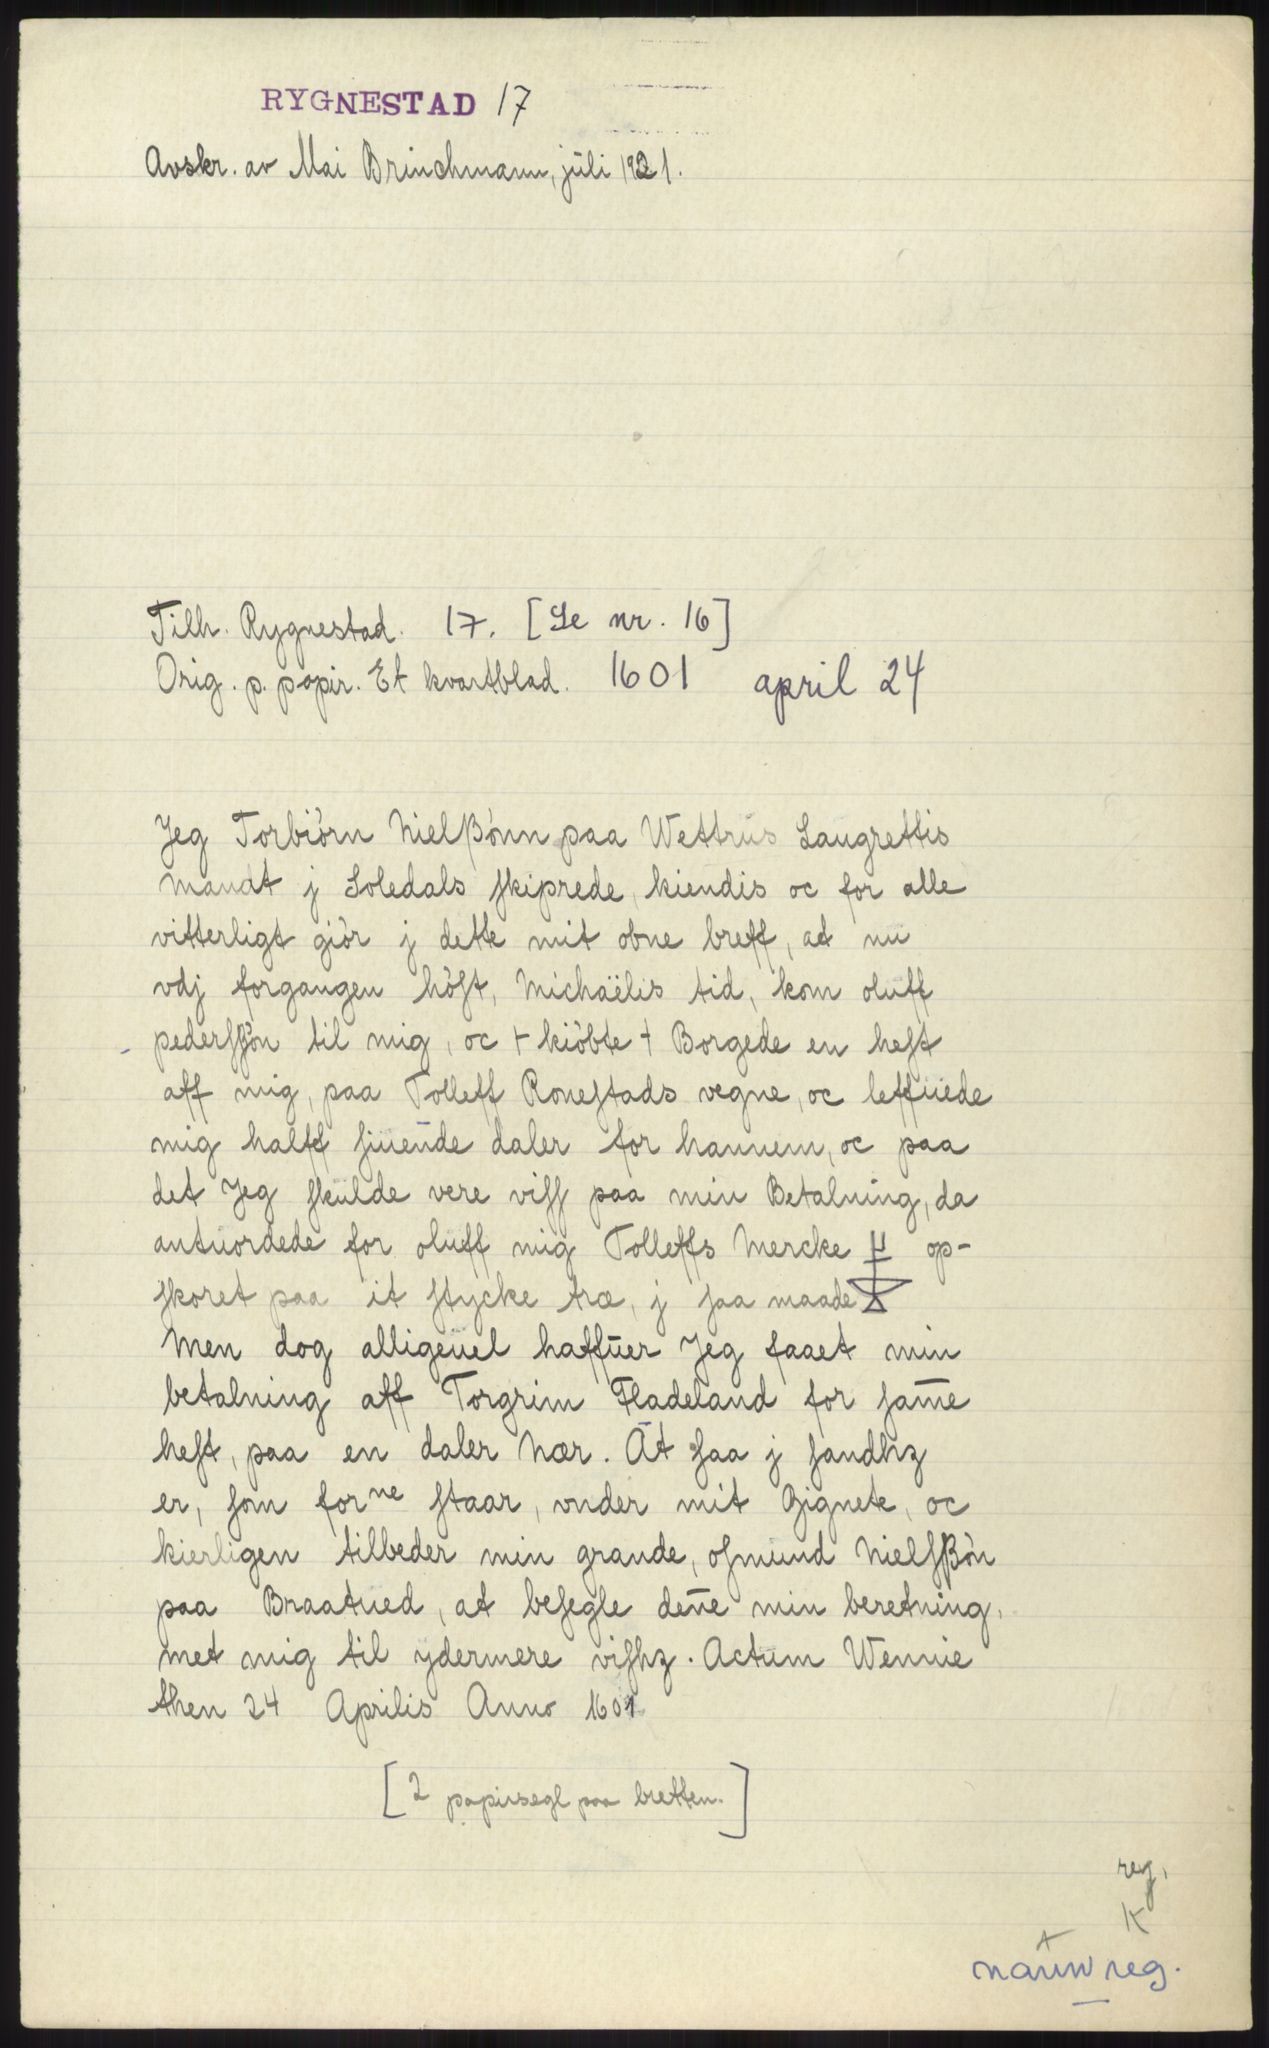 RYGNESTAD 17
Avskr. av Mai Brinchmann, júli 1921.
Tilh. Rygnestad. 17. [Se nr. 16]
Orig. p. papir. Et kvartblad. 1601 april 24
Jeg Torbiörn Nielßönn paa Wettrus Laugrettis
Mandt j Soledals skiprede, kiendis oc for alle
vitterligt giör j dette mit obne breff, at nu
vdj forgangen höst, Michaëlis tid, kom oluff
pedersßön til mig, oc + kiöbte + Borgede en hest
aff mig, paa Tolleff Ronestads vegne, oc leffuede
mig halff siuende daler for hannem, oc paa
det Jeg skulde vere viss paa min Betalning, da
antuordede for oluff mig Tolleffs Mercke op-
skoret paa it stycke træ, j saa maade
Men dog alligeuel haffuer Jeg faaet min
betalning aff Torgrim Fladeland for sam̅e
hest, paa en daler Nær. At saa j sandhz
er, som forne staar, vnder mit Zignete, oc
kierligen tilbeder min grande, osmund Nielsßön
paa Braatued, at besegle den̅e min beretning,
met mig til ydermere vishz. Actum Wennie
then 24 Aprilis Anno 1601
[2 papirsegl paa bretten.]
reg.
K
navne reg.